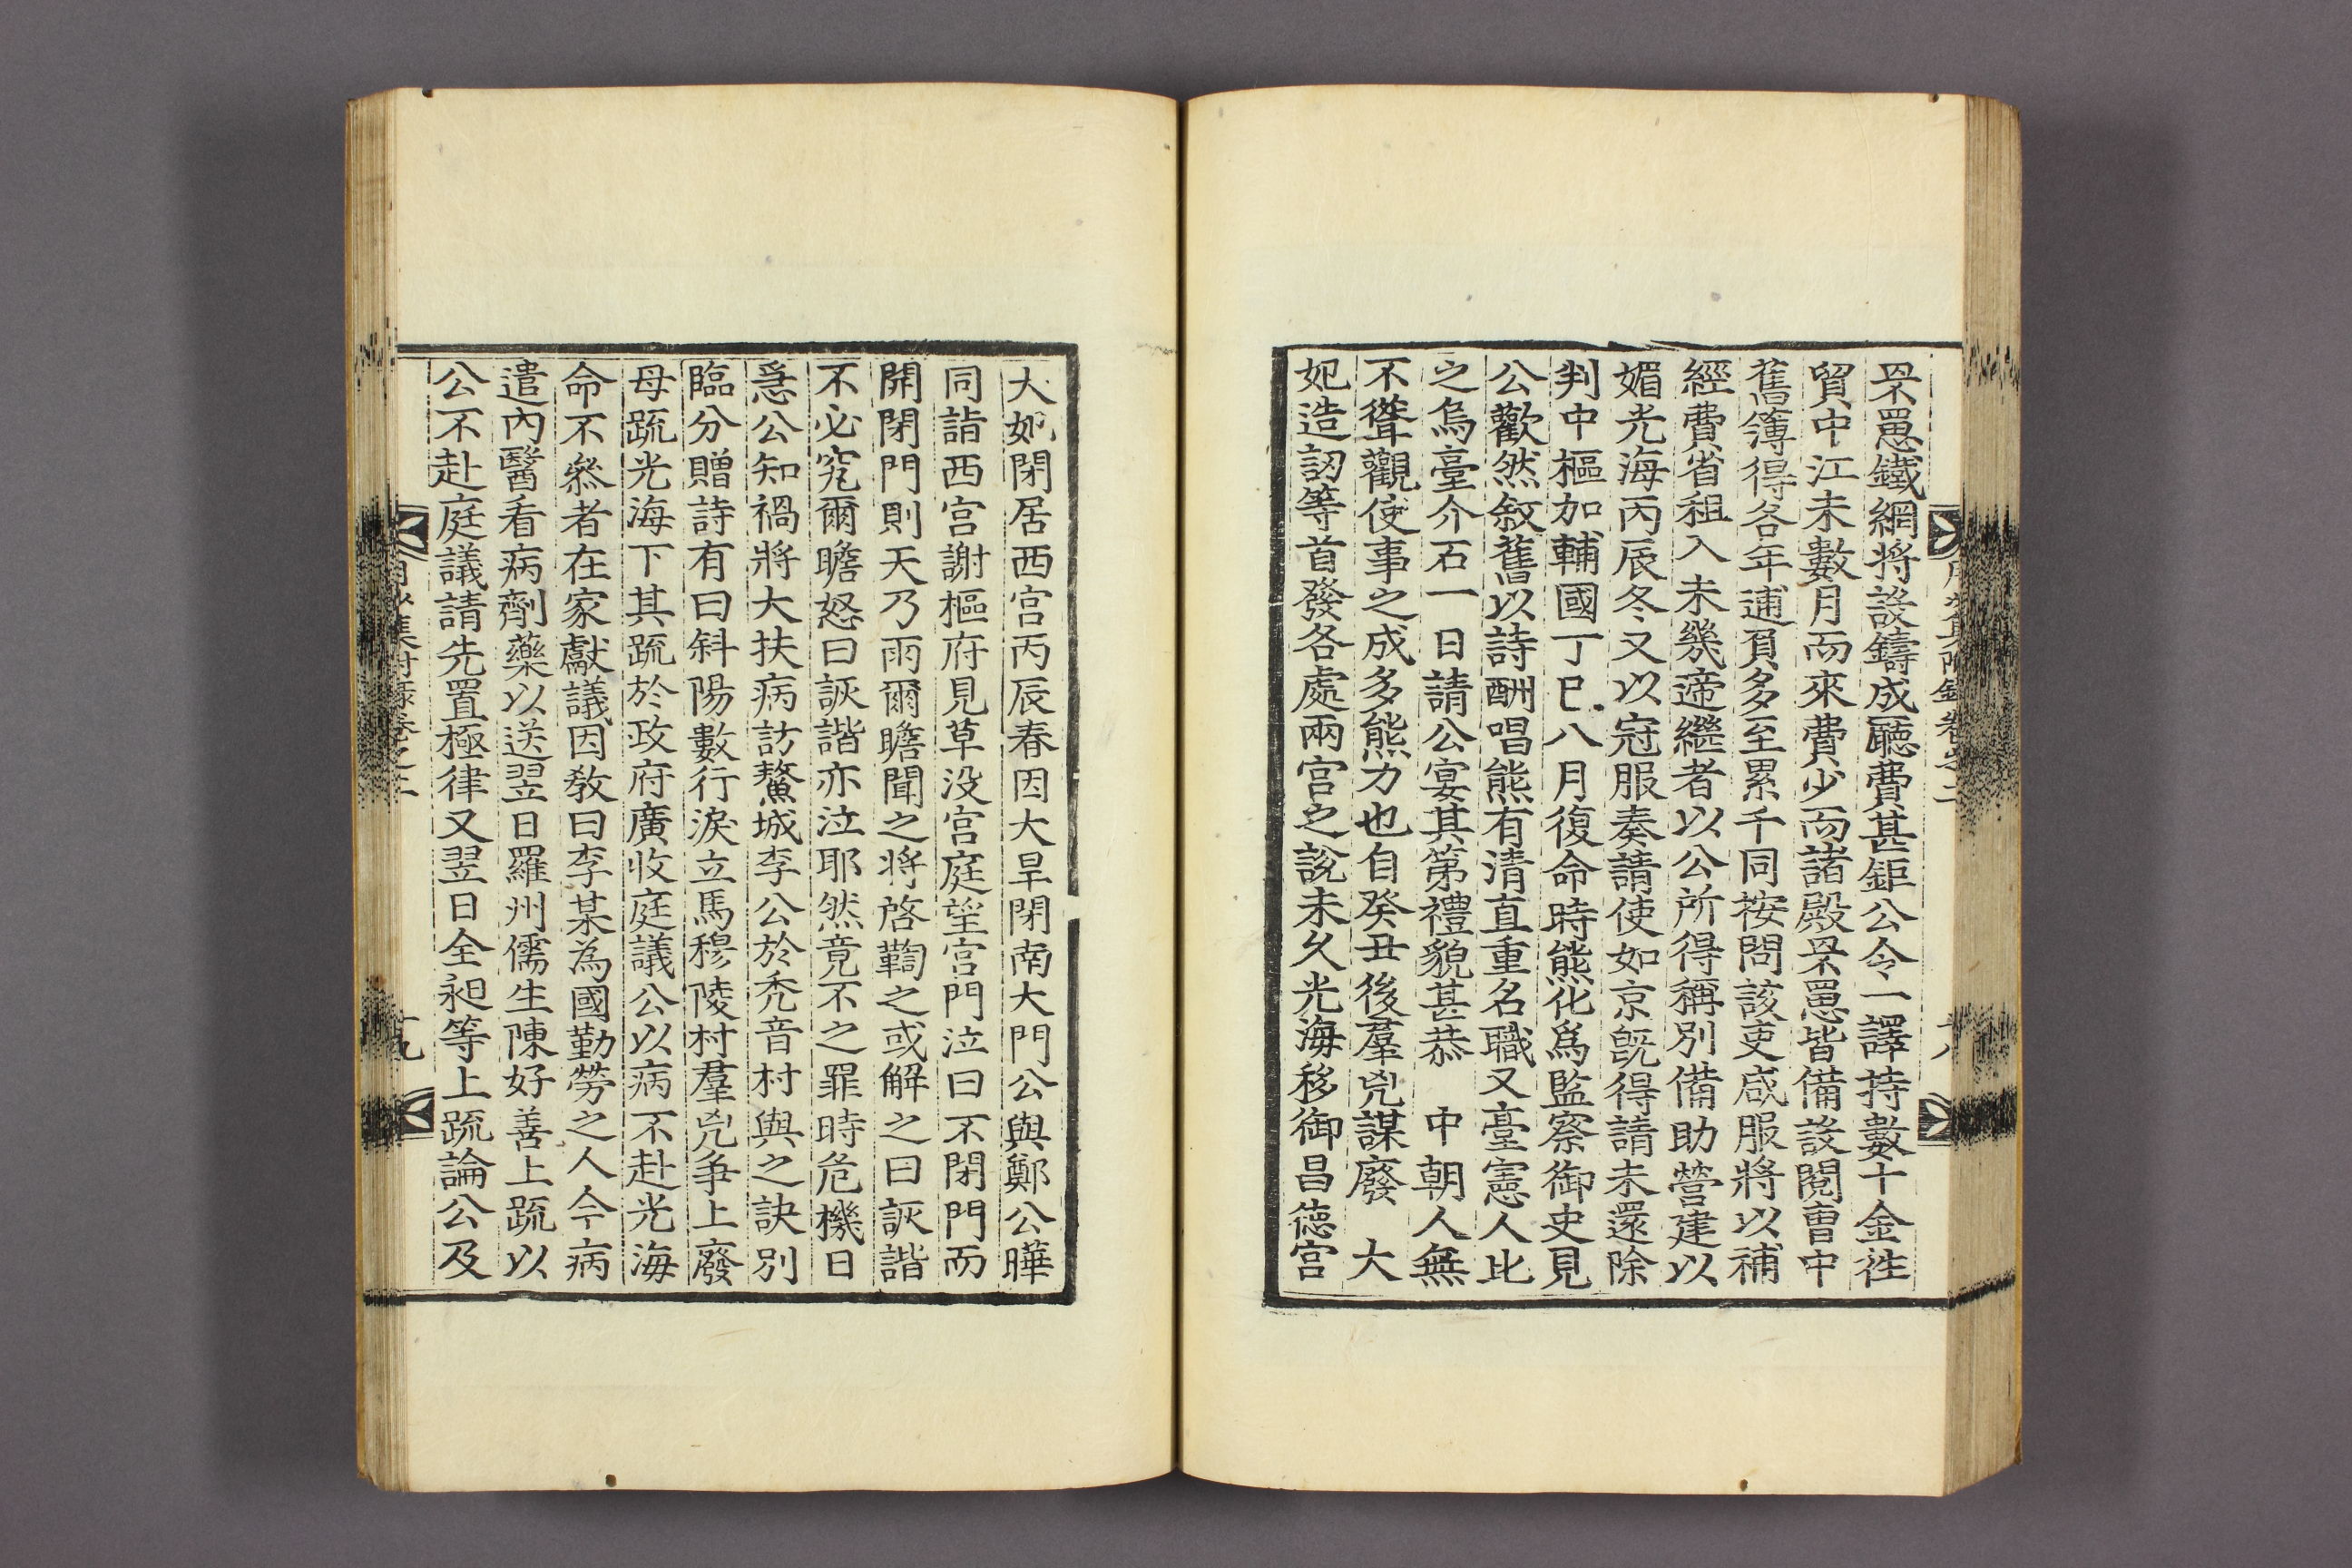 罘罳鐵網將設鑄成廳費甚鉅公令一譯持數十金徃
貿中江未數月而來費少而諸殿罘罳皆備設閱曺中
舊簿得各年逋負多至累千同按問該吏咸服將以補
經費省租入未幾遞繼者以公所得稱別備助營建以
媚光海丙辰冬又以冠服奏請使如京旣得請未還除
判中樞加輔國丁巳八月復命時熊化爲監察御史見
公歡然敘舊以詩酬唱熊有清直重名職又臺憲人比
之烏臺介石一日請公宴其第禮貌甚恭 中朝人無
不聳觀使事之成多熊力也自癸丑後羣兇謀廢 大
妃造訒等首發各處兩宮之說未久光海移御昌德宮
大妃閉居西宮丙辰春因大旱閉南大門公與鄭公曄
同詣西宮謝樞府見草沒宮庭望宮門泣曰不閉門而
開閉門則天乃雨爾瞻聞之將啓鞫之或解之曰詼諧
不必究爾瞻怒曰詼諧亦泣耶然竟不之罪時危機日
急公知禍將大扶病訪鰲城李公於禿音村與之訣別
臨分贈詩有曰斜陽數行淚立馬穆陵村羣兇爭上廢
母疏光海下其疏於政府廣收庭議公以病不赴光海
命不叅者在家獻議因敎曰李某為國勤勞之人今病
遣內醫看病劑藥以送翌日羅州儒生陳好善上疏以
公不赴庭議請先置極律又翌日全昶等上疏論公及